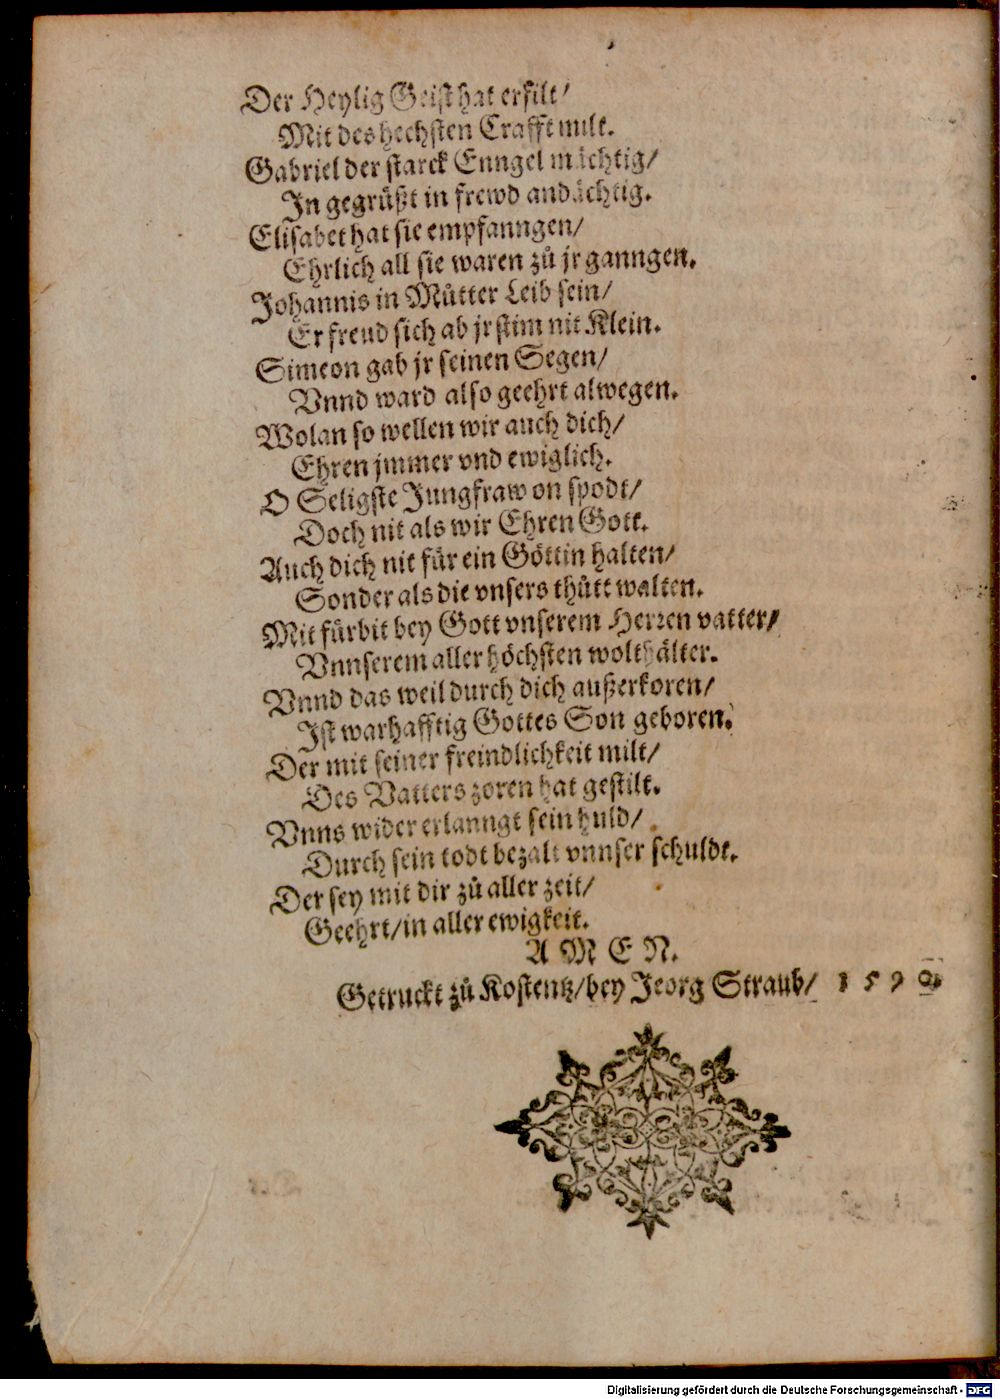 Der Heylig Geist hat erfilt/
Mit des hechsten Crafft milt.
Gabriel der starck Enngel mächtig/
In gegrüßt in frewd andächtig.
Elisabet hat sie empfanngen/
Ehrlich all sie waren zů jr ganngen.
Johannis in Můtter Leib sein/
Er freud sich ab jr stim nit Klein.
Simeon gab jr seinen Segen/
Vnnd ward also geehrt alwegen.
Wolan so wellen wir auch dich/
Ehren jmmer vnd ewiglich.
O Seligste Jungfraw on spodt/
Doch nit als wir Ehren Gott.
Auch dich nit für ein Göttin halten/
Sonder als die vnsers thůtt walten.
Mit fürbit bey Gott vnserem Herren vatter/
Vnnserem aller höchsten wolthälter.
Vnnd das weil durch dich außerkoren/
Ist warhafftig Gottes Son geboren.
Der mit seiner freindlichkeit milt/
Des Vatters zoren hat gestilt.
Vnns wider erlanngt sein huld/
Durch sein todt bezalt vnnser schuldt.
Der sey mit dir zů aller zeit/
Geehrt/in aller ewigkeit.
A M E N.
Getruckt zů Kostentz/bey Jeorg Straub/
Digitalisierung gefördert durch die Deutsche Forschungsgemeinschaft - DFG